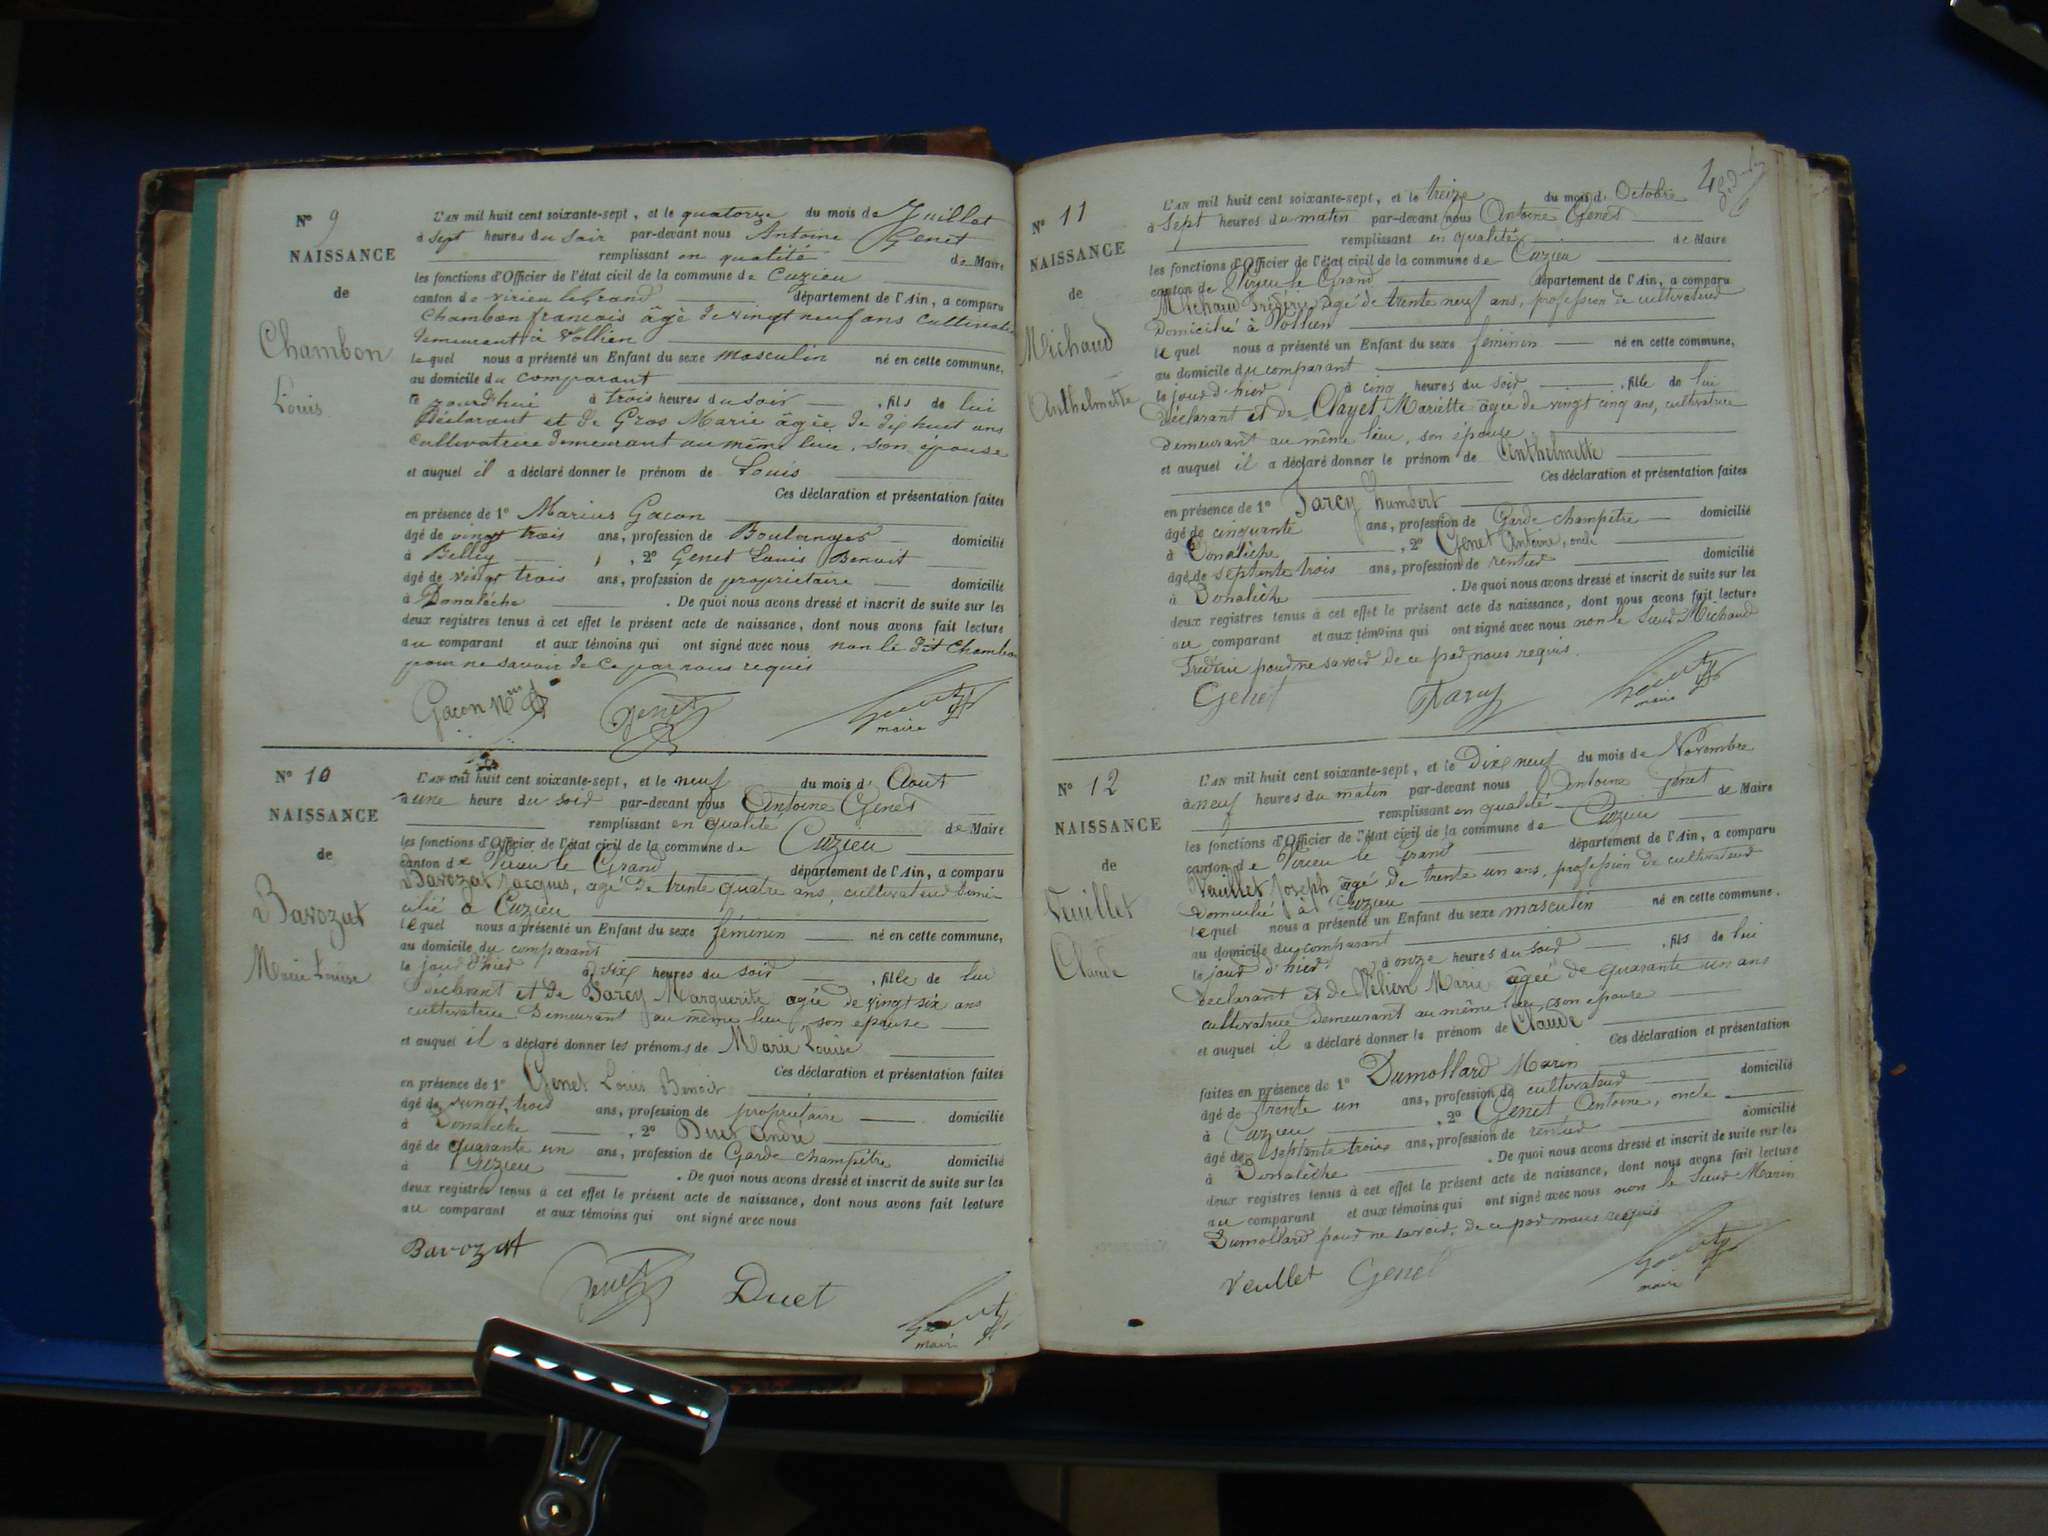 N° 9
NAISSANCE
de
Chambon
Louis
L'AN mil huit cent soixante-sept, et le quatorze du mois de Juillet
à sept heures du soir par-devant nous Antoine Genet
remplissant en qualité de Maire
les fonctions d'Officier de l'état civil de la commune de Cuzieu
canton de virieu le Grand département de l'Ain, a comparu
Chambon francois âgé de vingt neuf ans cultivateur
demeurant à Vollien
lequel nous a présenté un Enfant du sexe masculin né en cette commune,
au domicile du comparant
à trois heures du soir, fils de lui
déclarant et de Gros Marie âgée de dix huit ans
cultivatrice demeurant au même lieu, son épouse
et auquel il a déclaré donner le prénom de Louis
Ces déclaration et présentation faites
en présence de 1° Marius Gacon
âgé de vingt trois ans, profession de Boulanger domicilié
à Belley, 2° Genet Louis Benoit
âgé de vingt trois ans, profession de propriétaire domicilié
à Donalèche. De quoi nous avons dressé et inscrit de suite sur les
deux registres tenus à cet effet le présent acte de naissance, dont nous avons fait lecture
au comparant et aux témoins qui ont signé avec nous non le dit Chambon
pour ne savoir de ce par nous requis
Gacon Genet
maire
N° 10
NAISSANCE
de
Bavozat
Marie Louise
L'AN mil huit cent soixante-sept, et le neuf du mois d'Aout
à une heure du soir par-devant nous Antoine Genet
remplissant en qualité de Maire
les fonctions d'Officier de l'état civil de la commune de Cuzieu
canton de Virieu le Grand département de l'Ain, a comparu
Bavozat Jacques, agé de trente quatre ans, cultivateur domi-
cilié à Cuzieu
lequel nous a présenté un Enfant du sexe féminin né en cette commune,
au domicile du comparant
le jour d'hier à six heures du soir, fille de lui
déclarant et de Jarcy Marguerite agée de vingt six ans
cultivatrice demeurant au même lieu, son epouse
et auquel il a déclaré donner les prénoms de Marie Louise
Ces déclaration et présentation faites
en présence de 1° Genet Louis Benoit
âgé de vingt trois ans, profession de propriétaire domicilié
à Donalèche, 2° Duet André
âgé de quarante un ans, profession de Garde champêtre domicilié
à Cuzieu. De quoi nous avons dressé et inscrit de suite sur les
deux registres tenus à cet effet le présent acte de naissance, dont nous avons fait lecture
au comparant et aux témoins qui ont signé avec nous
Bavozat
Genet Duet
maire
4
N° 11
NAISSANCE
de
Michaud
Anthelmette
L'AN mil huit cent soixante-sept, et le treize du mois d'Octobre
à sept heures du matin par-devant nous Antoine Genet
remplissant en qualité de Maire
les fonctions d'Officier de l'état civil de la commune de Cuzieu
canton de Virieu le Grand département de l'Ain, a comparu
Michaud Fréderic agé de trente neuf ans, profession de cultivateur
domicilié à Vollien
lequel nous a présenté un Enfant du sexe féminin né en cette commune,
au domicile du comparant
le jour d'hier à cinq heures du soir, fille de lui
déclarant et de Clayet Mariette agée de vingt cinq ans, cultivatrice
demeurant au même lieu, son épouse
et auquel il a déclaré donner le prénom de Anthelmette
Ces déclaration et présentation faites
en présence de 1° Jarcy humbert
âgé de cinquante ans, profession de Garde champêtre domicilié
à Donalèche, 2° Genet Antoine, oncle
âgé de septente trois ans, profession de rentier domicilié
à Donalèche. De quoi nous avons dressé et inscrit de suite sur les
deux registres tenus à cet effet le présent acte de naissance, dont nous avons fait lecture
au comparant et aux témoins qui ont signé avec nous non le Sieur Michaud
Fréderic pour ne savoir de ce par nous requis.
Genet Jarcy
maire
N° 12
NAISSANCE
de
Veuillet
Claude
L'AN mil huit cent soixante-sept, et le Dix neuf du mois de Novembre
à neuf heures du matin par-devant nous Antoine genet
remplissant en qualité de Maire
les fonctions d'Officier de l'état civil de la commune de Cuzieu
canton de Virieu le grand département de l'Ain, a comparu
Veuillet Joseph âgé de trente un ans, profession de cultivateur
domicilié à Cuzieu
lequel nous a présenté un Enfant du sexe masculin né en cette commune.
au domicile du comparant
le jour d'hier à onze heures du soir, fils de lui
déclarant et de Marie agée de quarante un ans
cultivatrice demeurant au même lieu, son epouse
et auquel il a déclaré donner le prénom de Claude
Ces déclaration et présentation
faites en présence de 1° Dumollard Marin
âgé de trente un ans, profession de cultivateur domicilié
à Cuzieu, 2° Genet Antoine, oncle
âgé de septente trois ans, profession de rentier domicilié
à Donalèche. De quoi nous avons dressé et inscrit de suite sur les
deux registres tenus à cet effet le présent acte de naissance, dont nous avons fait lecture
au comparant et aux témoins qui ont signé avec nous non le Sieur Marin
Dumollard pour ne savoir, de ce par nous requis
Veullet Genet
maire